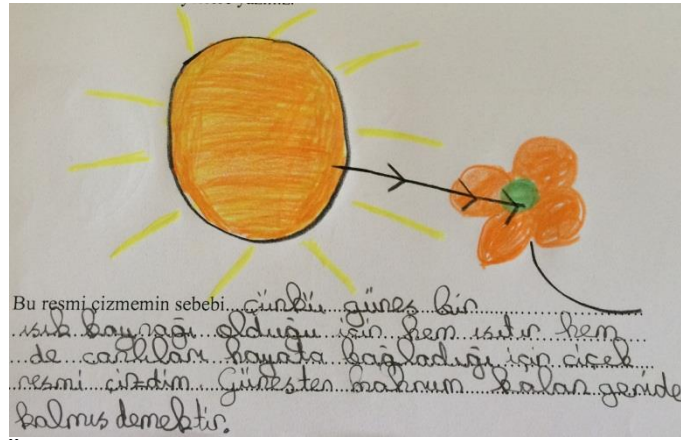 yazınız.
Bu resmi çizmemin sebebi çünkü güneş bir
ışık kaynağı olduğu için hem ısıtır hem
de canlıları hayata bağladığı için çiçek
resmi çizdim. Güneşten mahrum kalan geride
kalmış demektir.